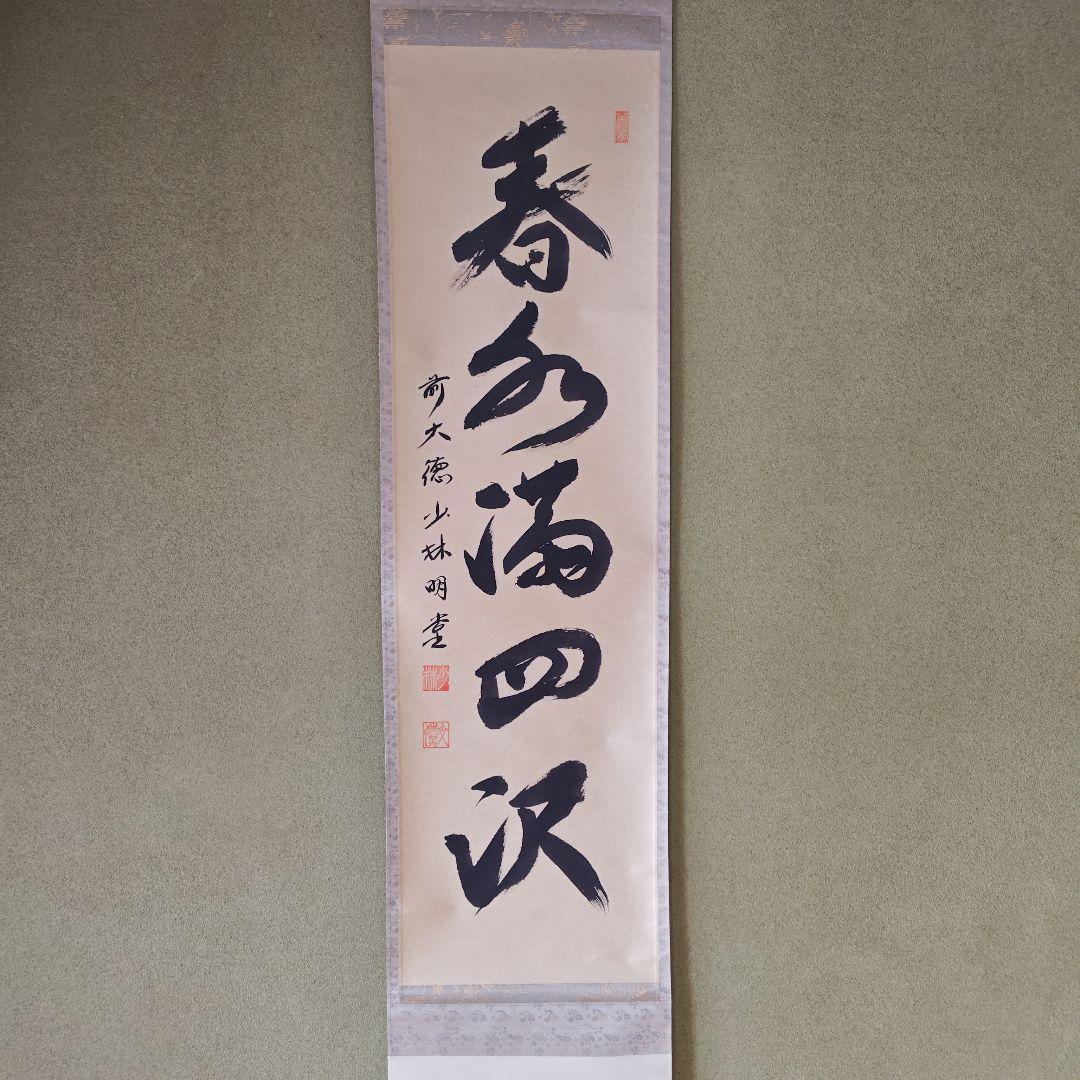 春水満四沢
前大徳少林明堂